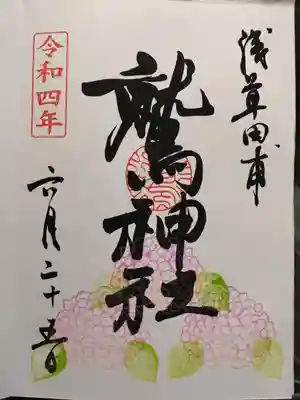 浅草田甫
鷲神社
令和四年
六月二十五日